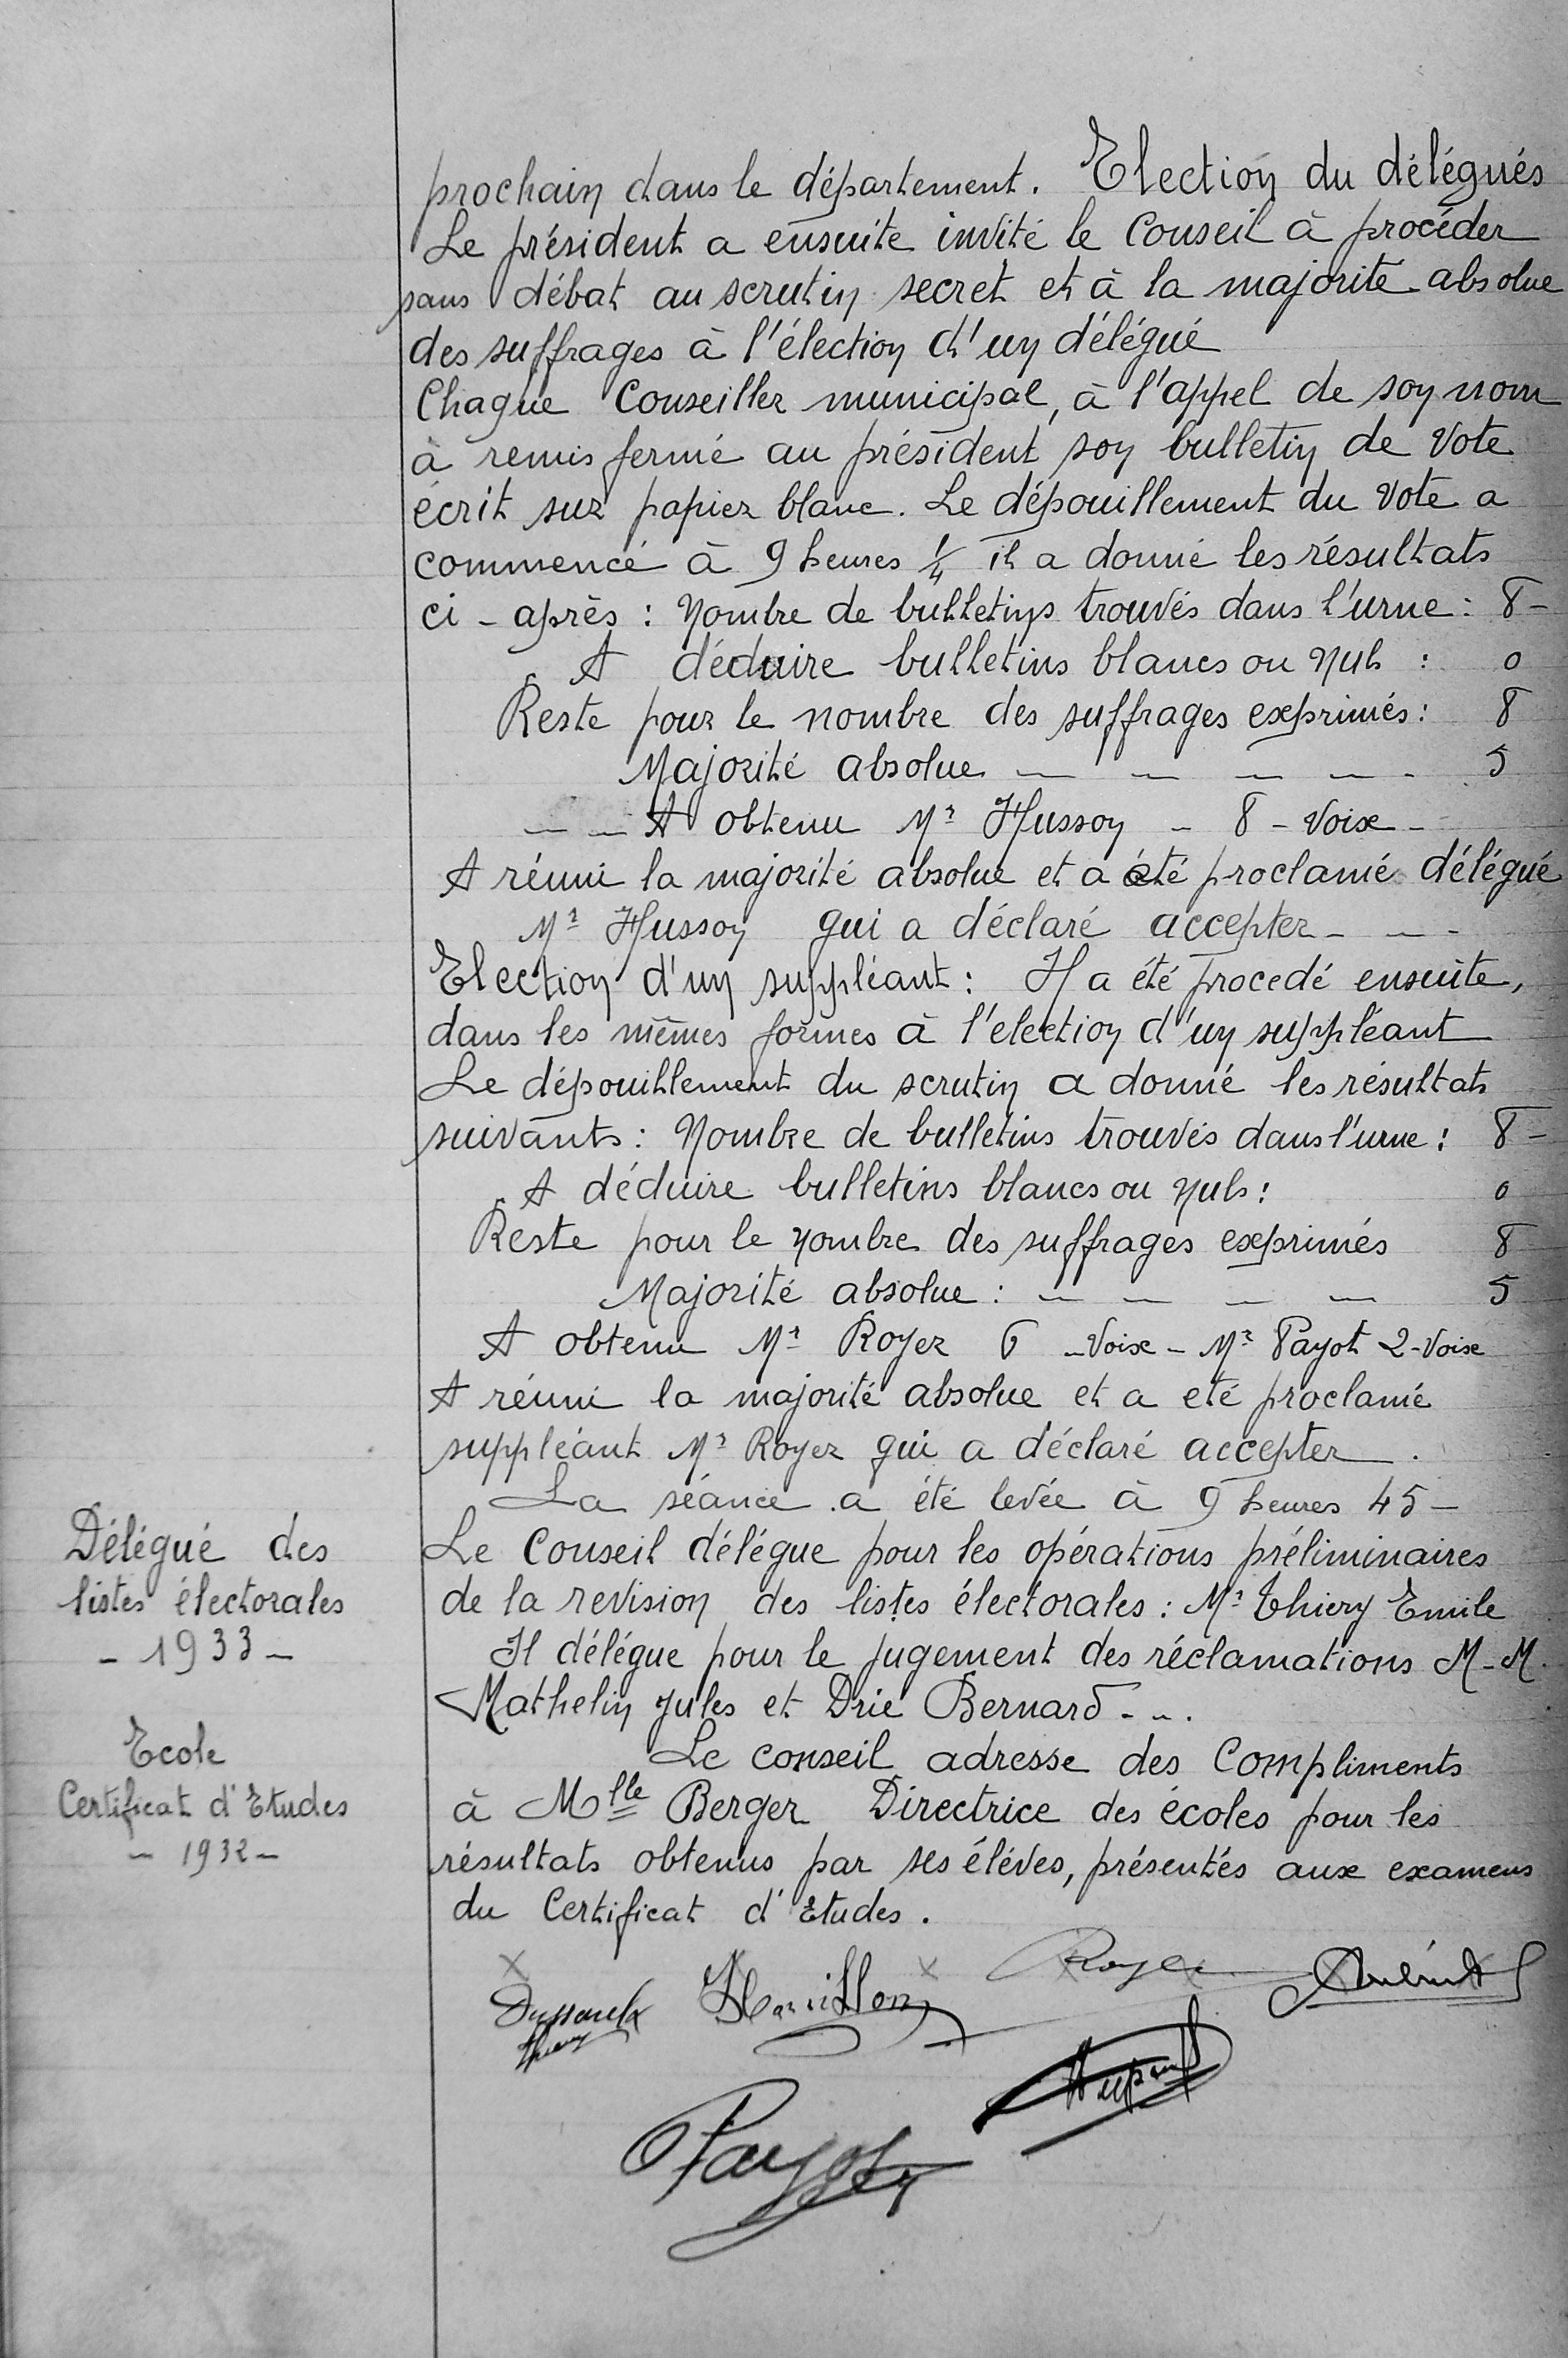 prochain dans le département. Election du délégués
Le président a ensuite invité le Conseil à procéder
sans débat au scrutin secret et à la majorité absolue
des suffrages à l'élection d'un délégué
Chaque Conseiller municipal, à l'appel de son nom
à remis fermé au président son bulletin de Vote
écrit sur papier blanc. Le dépouillement du Vote a
commencé à 9 heures 1/4 il a donné les résultats
ci - après : Nombre de bulletins trouvés dans l'urne : 8 -
A déduire bulletins blancs ou nuls : 0
Reste pour le nombre des suffrages exprimés : 8
Majorité absolue — — — — - 5
— — A obtenu Mr Husson - 8 - Voix -
A réuni la majorité absolue et a été proclamé délégué
Mr Husson qui a déclaré accepter - — -
Election d'un suppléant : Il a été procedé ensuite,
dans les mêmes formes à l'election d'un suppléant
Le dépouillement du scrutin a donné les résultats
suivants : Nombre de bulletins trouvés dans l'urne : 8 -
A déduire bulletins blancs ou nuls : 0
Reste pour le nombre des suffrages exprimés 8
Majorité absolue : — — — — 5
A obtenu Mr Royer 6 - Voix - Mr Payot 2 - Voix
A réuni la majorité absolue et a eté proclamé
suppléant Mr Royer qui a déclaré accepter .
La séance a été levée à 9 heures 45 -
Délégué des
listes électorales
- 1933 -
Le Conseil délégue pour les opérations préliminaires
de la revision des listes électorales : Mr Thiery Emile
Il délégue pour le jugement des réclamations M - M.
Mathelin Jules et Drie Bernard - - .
Ecole
Certificat d'Etudes
- 1932 -
Le conseil adresse des Compliments
à Mlle Berger Directrice des écoles pour les
résultats obtenus par ses éléves, présentés aux examens
du Certificat d'Etudes .
Royer
Thiery
Payot